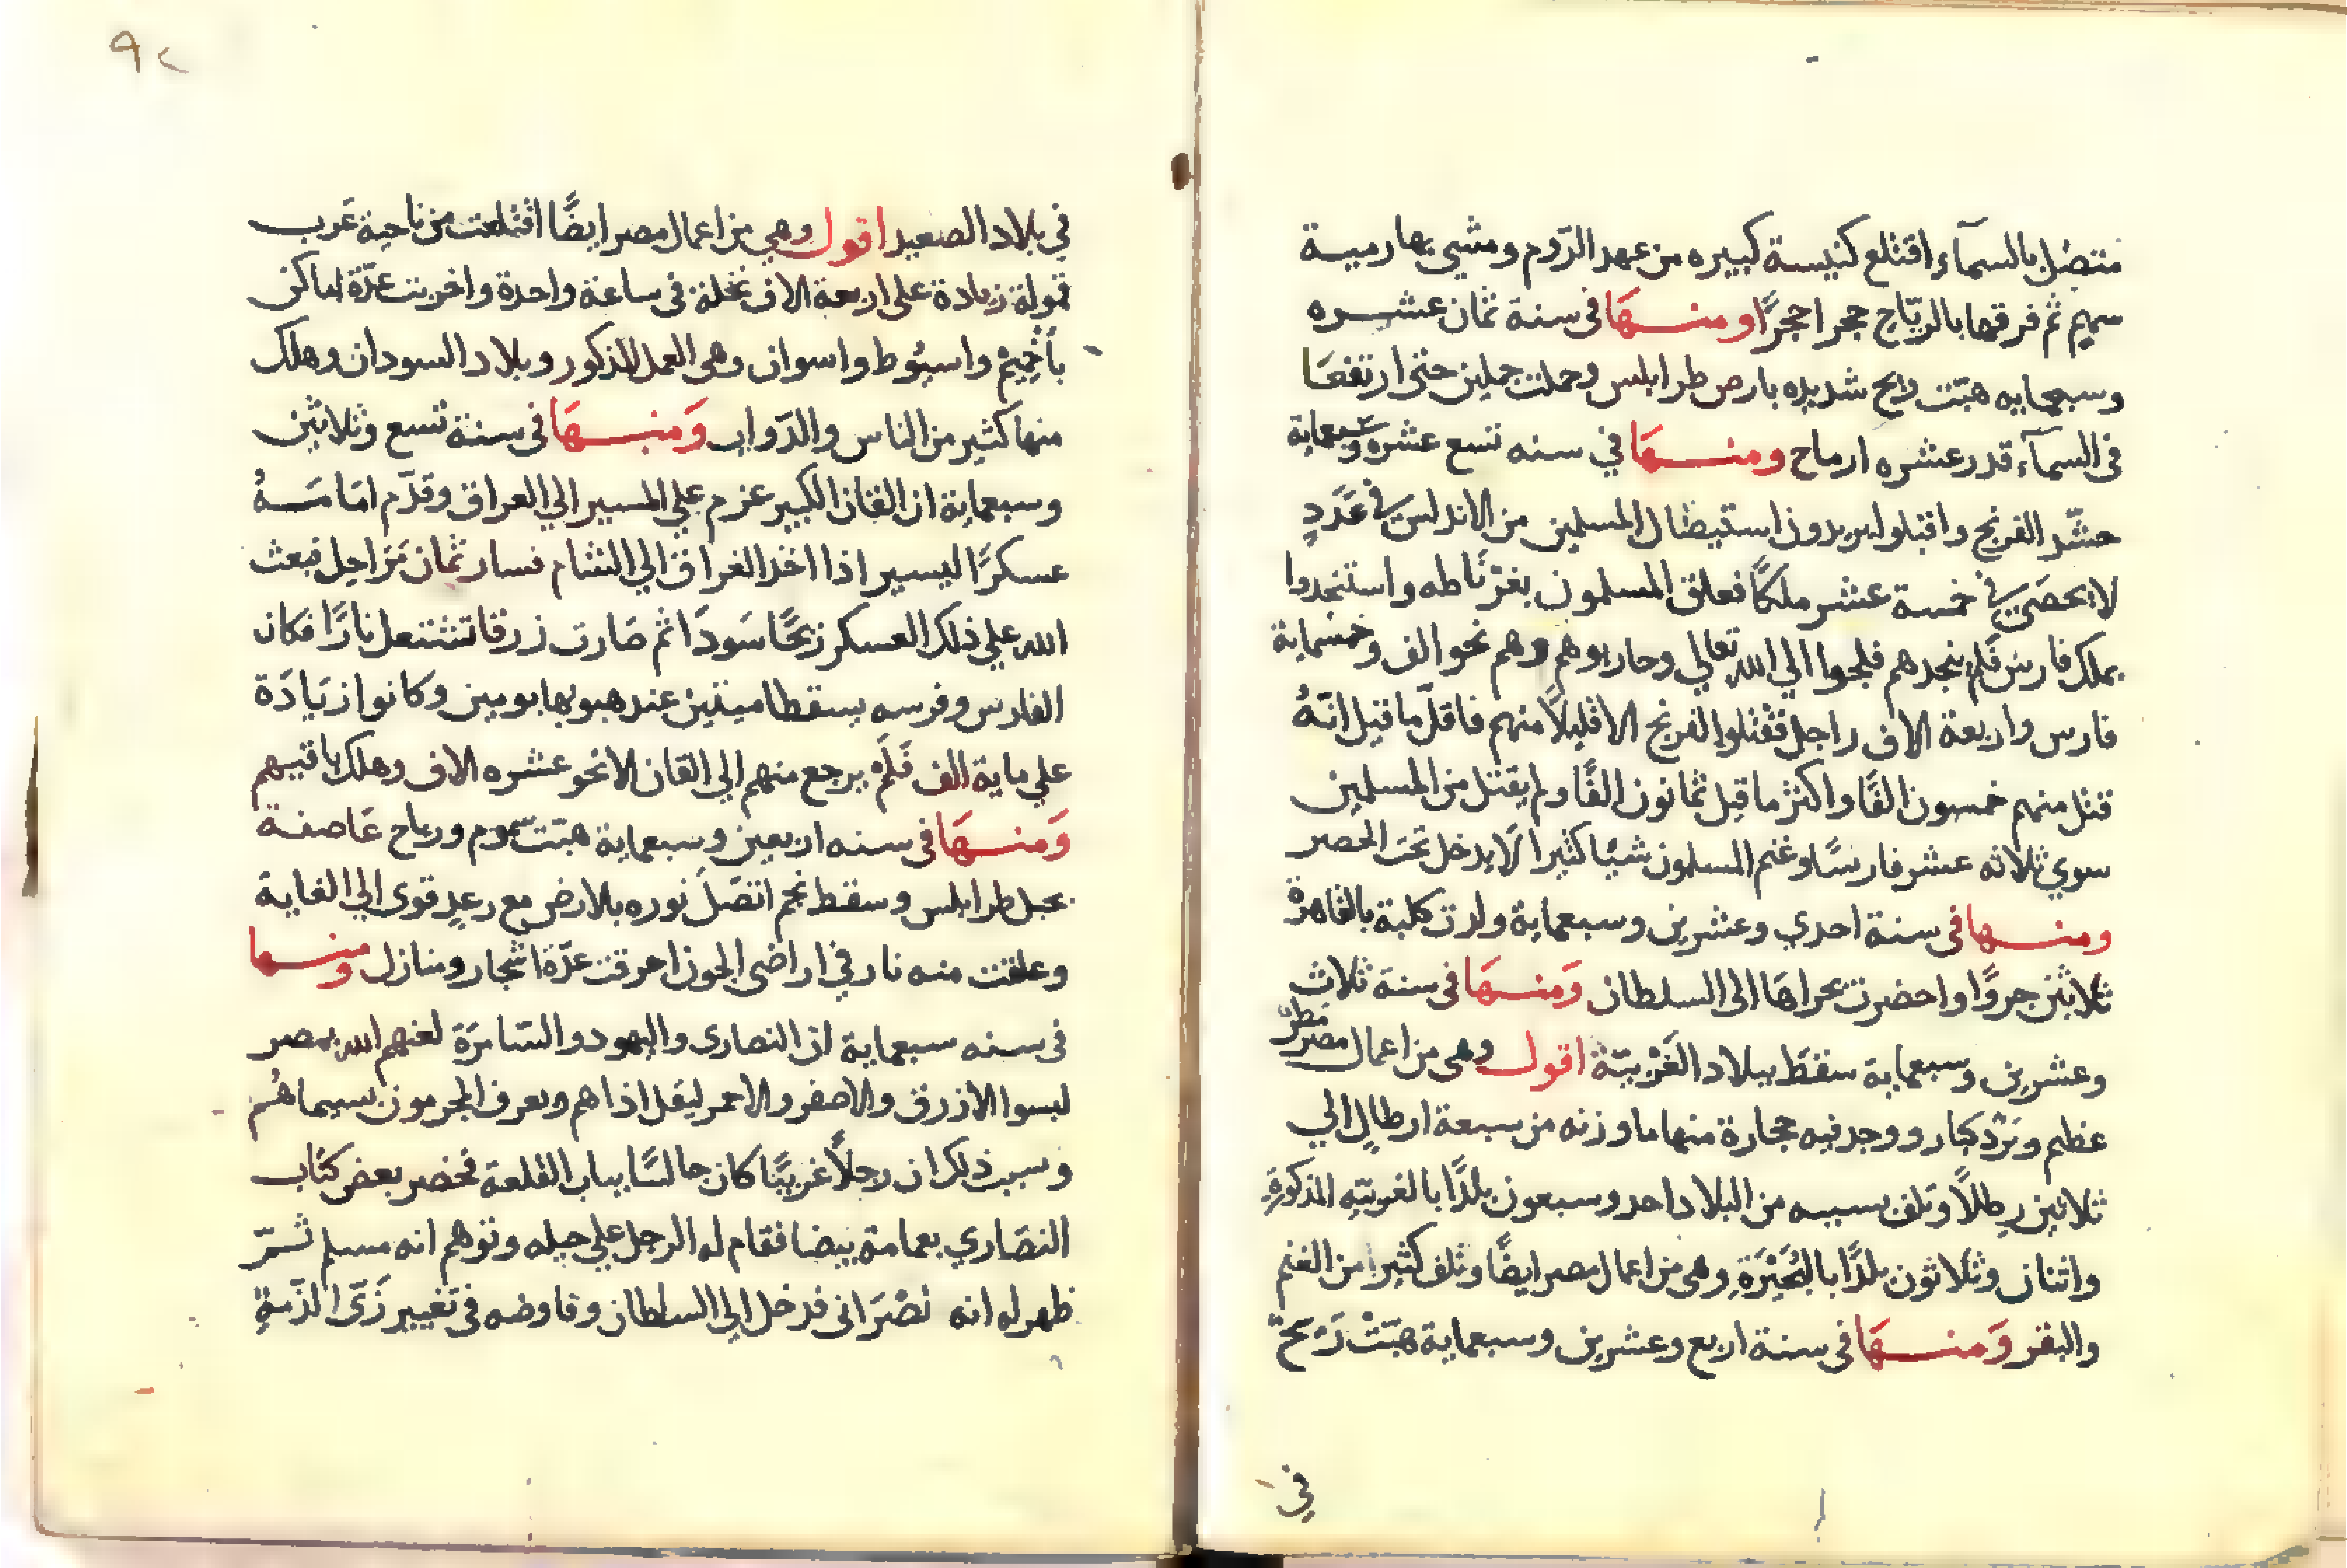 متصل بالسمآء اقتلع كنيسة كبيره من عهد الروم ومشي بها رمية
سهم ثم فرقها بالرياح حجرا حجرًا ومنها في سنة ثمان عشره
وسبعمايه هبّت ريح شديده بارض طرابلس وحملت جملين حتى ارتفعا
في السمآء قدر عشره ارماح ومنها في سنه تسع عشره وسبعماية
حشّد الفرنج واقبلوا يريدون استيصال المسلمين من الاندلس في عَدَدٍ
لا يحصَي في خمسة عشر ملكًا فعلق المسلمون بغرناطه واستنجدوا
بملك فارس فلم ينجدهم فلجوا الي الله تعالي وحاربوهم وهم نحو الف وخمسماية
فارس واربعة الاف راجل فقتلوا الفرنج الا قليلاً منهم فاقلّ ما قيل انّهُ
قتل منهم خمسون الفًا واكثر ما قيل ثمانون الفًا ولم يقتل من المسلمين
سوي ثلاثه عشر فارسًا وغنم المسلمون شيًا كثيرا لا يدخل تحت الحصر
ومنها في سنة احدي وعشرين وسبعماية ولدت كلبة بالقاهرة
ثلاثين جروًا واحضرت بجراها الى السلطان وَمنها في سنة ثلاث
وعشرين وسبعماية سقط ببلاد الغَرْبيّة اقول وهي من اعمال مصر مطرٌ
عظيم وبَرْد كبار ووجد فيه حجارة منها ما وزنه من سبعة ارطالٍ الي
ثلاثين رطلاً وتلف بسببه من البلاد احد وسبعون بلدًا بالغربيّه المذكورةِ
واثنان وثلاثون بلدًا بالبُحَيْرَةِ وهي من اعمال مصر ايضًا وتلف كثيرا من الغنم
والبقر وَمنها في سنة اربع وعشرين وسبعماية هبّتْ رَيحٌ
في
٩٢
في بلاد الصعيد اقول وهي من اعمال مصر ايضًا اقتلعت من ناحية عرب
قمولة زيادة على اربعة الاف نخلة في ساعة واحدة واخربت عدّة اماكن
بأخميمْ واسيُوط واسوان وهي العمل المذكور وبلاد السودان وهلك
منها كثير من الناس والدَواب وَمنها في سنة تسع وثلاثين
وسبعماية ان القان الكبير عزم علي المسير الي العراق وقدّم امَامَهُ
عسكرًا اليسير اذا اخذ العراق الي الشام فسار ثمان مَراحل فبعث
الله علي ذلك العسكر ريحًا سَودَا ثم صَارت زرقا تشتعل نارًا فكان
الفارس وفرسه يسقطا ميتين عند هبوبها يومين وكانوا زيادَة
علي ماية الف فَلَم يرجع منهم الي القان الا نحو عشره الاف وهلك باقيهم
وَمنها في سنه اربعين وسبعماية هبّت سموم ورياح عَاصفة
بجبل طرابلس وسقط نجم اتصَلَ نوره بالارض مع رعدٍ قوى الي الغاية
وعلقت منه نار في اراضى الجون احرقت عدّة اشجار ومنازل ومنها
في سنه سبعماية ان النصارى واليهود والسّامرَة لعنهم الله بمصر
لبسوا الازرق والاصفر والاحمر ليقل اذاهم ويعرف المجرمون بسيماهُم
وسبب ذلك ان رجلاً غربيًّا كان جالسًا بباب القلعة فحضر بعض كتاب
النصَاري بعمامة بيضا فقام له الرجل علي حيله وتوهم انه مسلم ثمّ
ظهر له انه نصْرَانى فدخل الي السلطان وفاوضه في تغيير زَىّ الذّمةِ